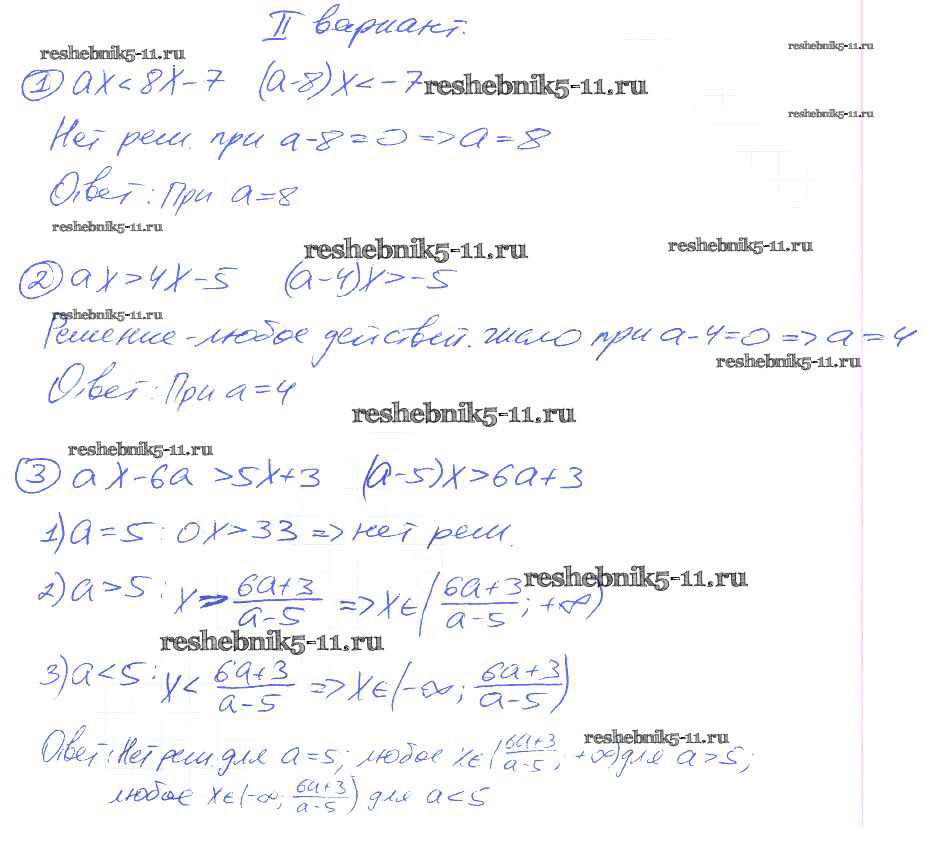 II вариант.
reshebnik5-11.ru reshebnik5-11.ru
① ax < 8x - 7 (a-8)x < -7 reshebnik5-11.ru
reshebnik5-11.ru
Нет реш. при a-8=0 => a=8
Ответ: При a=8
reshebnik5-11.ru
reshebnik5-11.ru reshebnik5-11.ru
② ax > 4x - 5 (a-4)x > -5
reshebnik5-11.ru
Решение - любое действ. число при a-4=0 => a=4
reshebnik5-11.ru
Ответ: При a=4
reshebnik5-11.ru
reshebnik5-11.ru
③ ax - 6a > 5x + 3 (a-5)x > 6a + 3
1) a=5: 0x > 33 => нет реш.
2) a > 5: x > (6a+3)/(a-5) => x ∈ ((6a+3)/(a-5); +∞)
reshebnik5-11.ru
reshebnik5-11.ru
3) a < 5: x < (6a+3)/(a-5) => x ∈ (-∞; (6a+3)/(a-5))
reshebnik5-11.ru
Ответ: Нет реш. для a=5; любое x ∈ ((6a+3)/(a-5); +∞) для a > 5;
любое x ∈ (-∞; (6a+3)/(a-5)) для a < 5